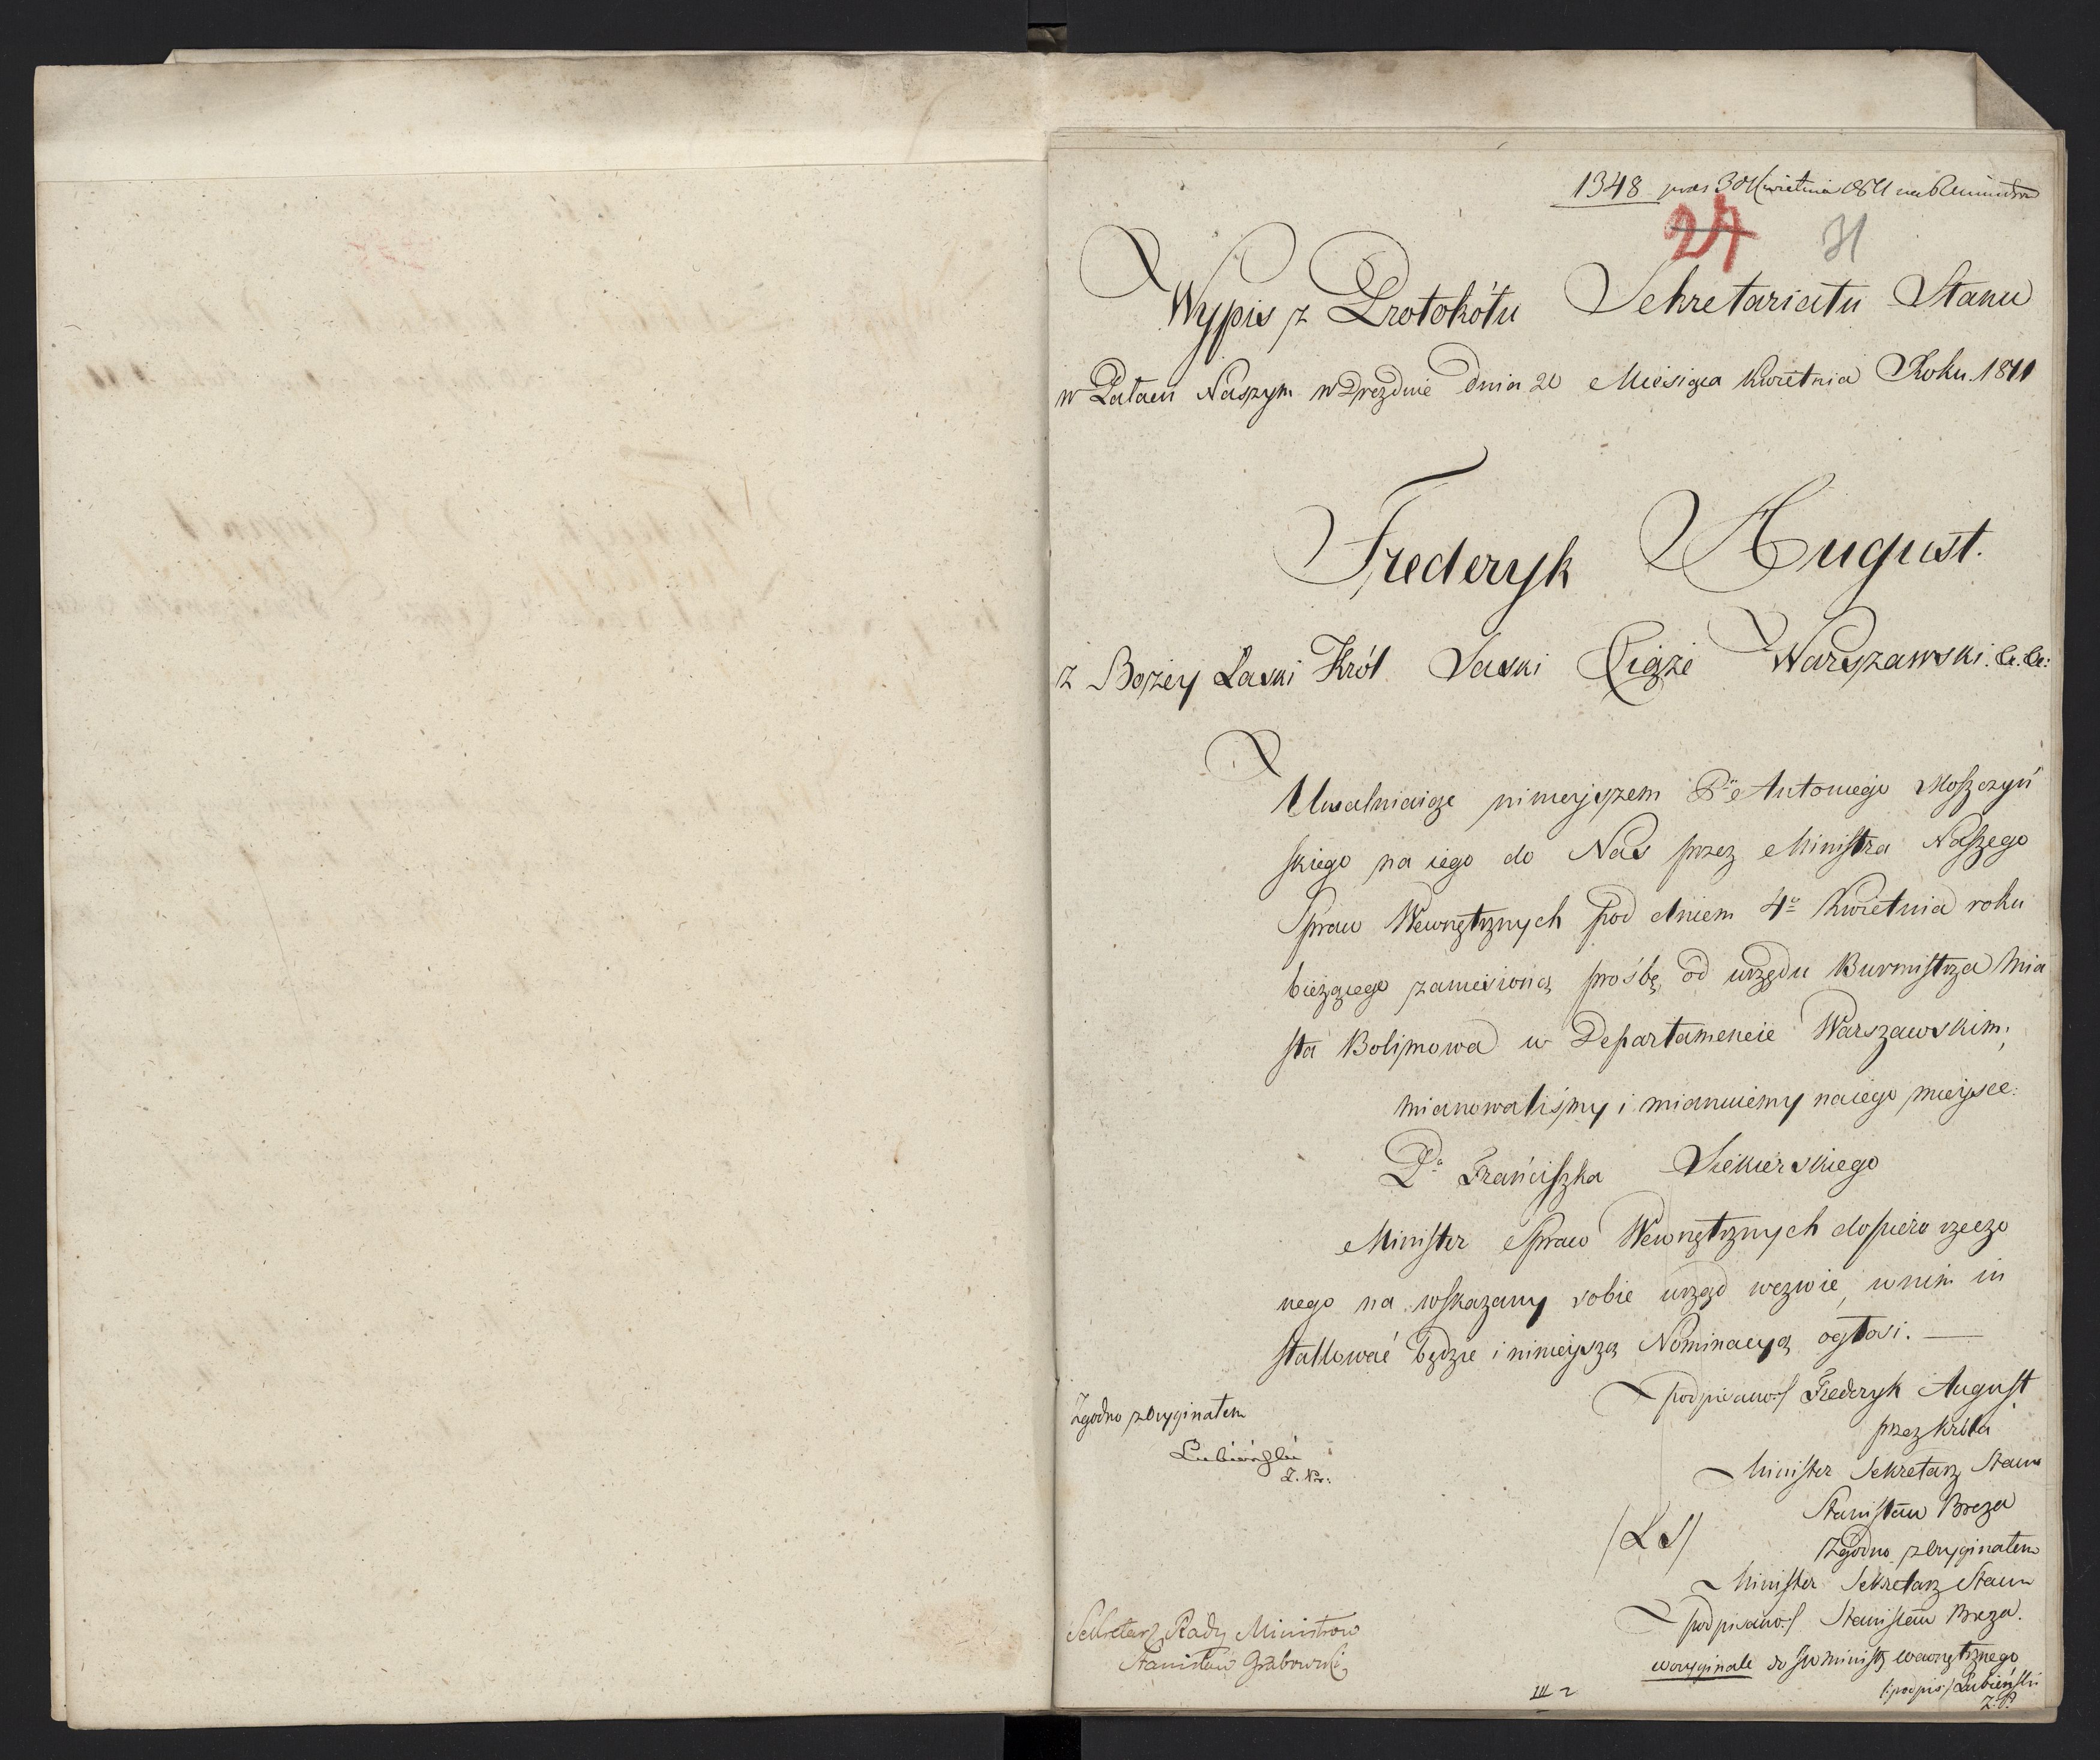 1348 praes 30 Kwietnia 1811
24 31
Wypis z Protokółu Sekretariatu Stanu
w Pałacu Naszym w Dreźnie dnia 20 Miesiąca Kwietnia Roku 1811
Frederyk August.
z Bożey Łaski Król Saski Xiąże Warszawski. &. &:
Uwalniaiąc ninieyszem Pa Antoniego Moszczyń
skiego na iego do Nas przez Ministra Naszego
Spraw Wewnętrznych pod dniem 4o Kwietnia roku
bieżącego zaniesioną prośbę, od urzędu Burmistrza Mia
sta Bolimowa w Departamencie Warszawskim;
mianowaliśmy i mianuiemy na iego mieysce:
Pa Franciszka Siekierskiego
Minister Spraw Wewnętrznych dopiero rzeczo
nego na wskazany sobie urząd wezwie, w nim in
stallować będzie i ninieyszą Nominacyą ogłosi. —
podpisano:/ Frederyk August
przez Króla
Minister Sekretarz Stanu
Stanisław Breza
Zgodno z Oryginałem
Minister Sekretarz Stanu
podpisano:/ Stanisław Breza.
w oryginale do JW Minist wewnętrznego
/:podpis:/ Łubieński
Z. P.
/LS/
Zgodno z Oryginałem
Łubieński
Sekretarz Rady Ministrow
Stanisław Grabowski
III 2